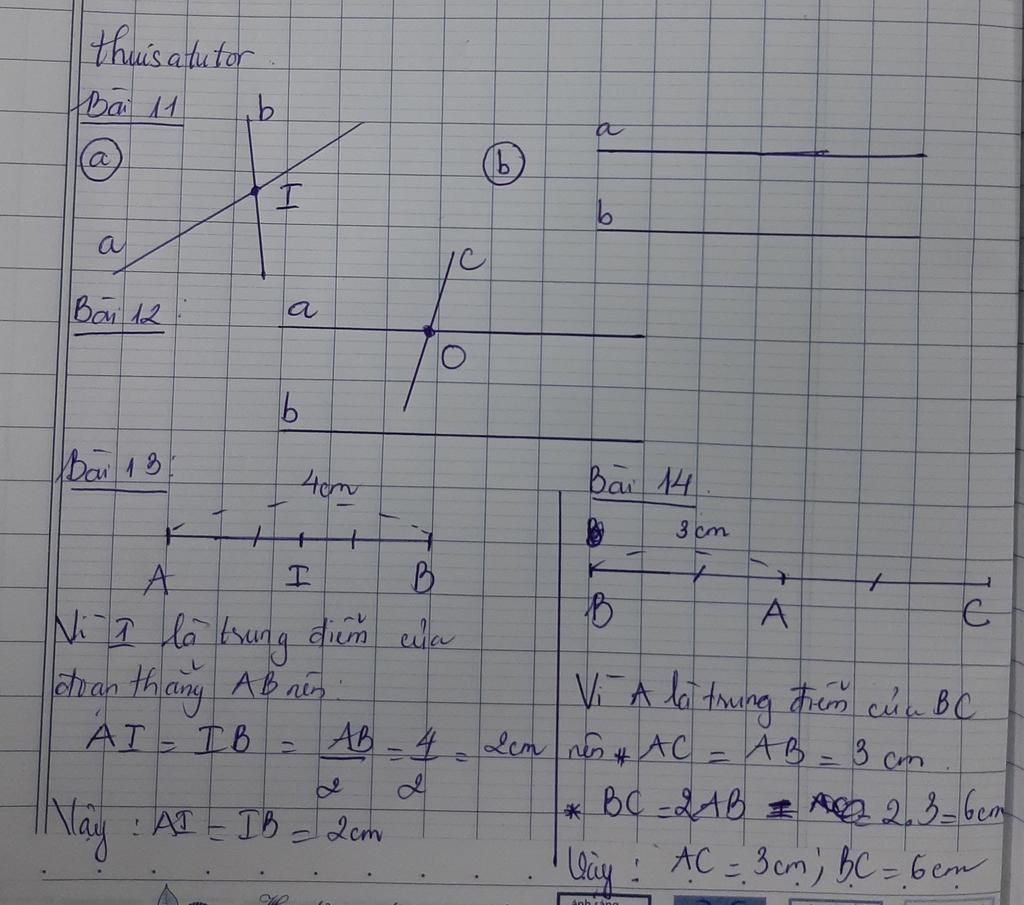 thuisatutor.
Bài 11
a
b
I
a
b
a
b
Bài 12:
a
C
O
b
Bài 13:
4cm
A I B
Vì I là trung điểm của
đoạn thẳng AB nên:
AI = IB = AB/2 = 4/2 = 2cm
Vậy: AI = IB = 2cm
Bài 14.
3cm
B A C
Vì A là trung điểm của BC
nên * AC = AB = 3 cm.
* BC = 2AB = 2.3 = 6cm
Vậy: AC = 3cm; BC = 6cm
ánh sáng